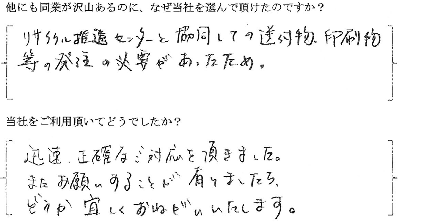 他にも同業が沢山あるのに、なぜ当社を選んで頂けたのですか？
リサイクル推進センターと協同しての送付物、印刷物
等の発注の必要があったため。
当社をご利用頂いてどうでしたか？
迅速、正確なご対応を頂きました。
またお願いすることが有りましたら、
どうか宜しくおねがいいたします。